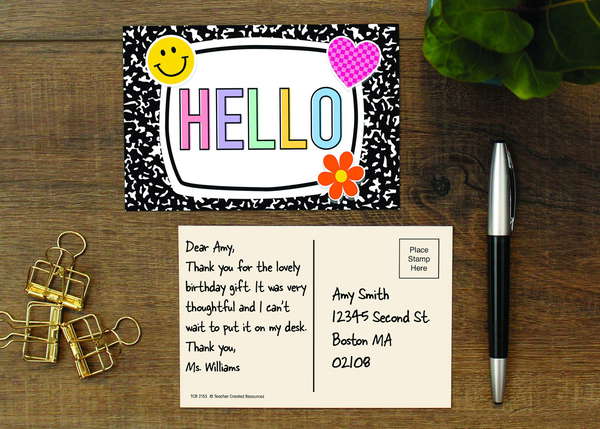 HELLO
Dear Amy,
Thank you for the lovely
birthday gift. It was very
thoughtful and I can't
wait to put it on my desk.
Thank you,
Ms. Williams
Place
Stamp
Here
Amy Smith
12345 Second St.
Boston MA
02108
TCR 2155 © Teacher Created Resources